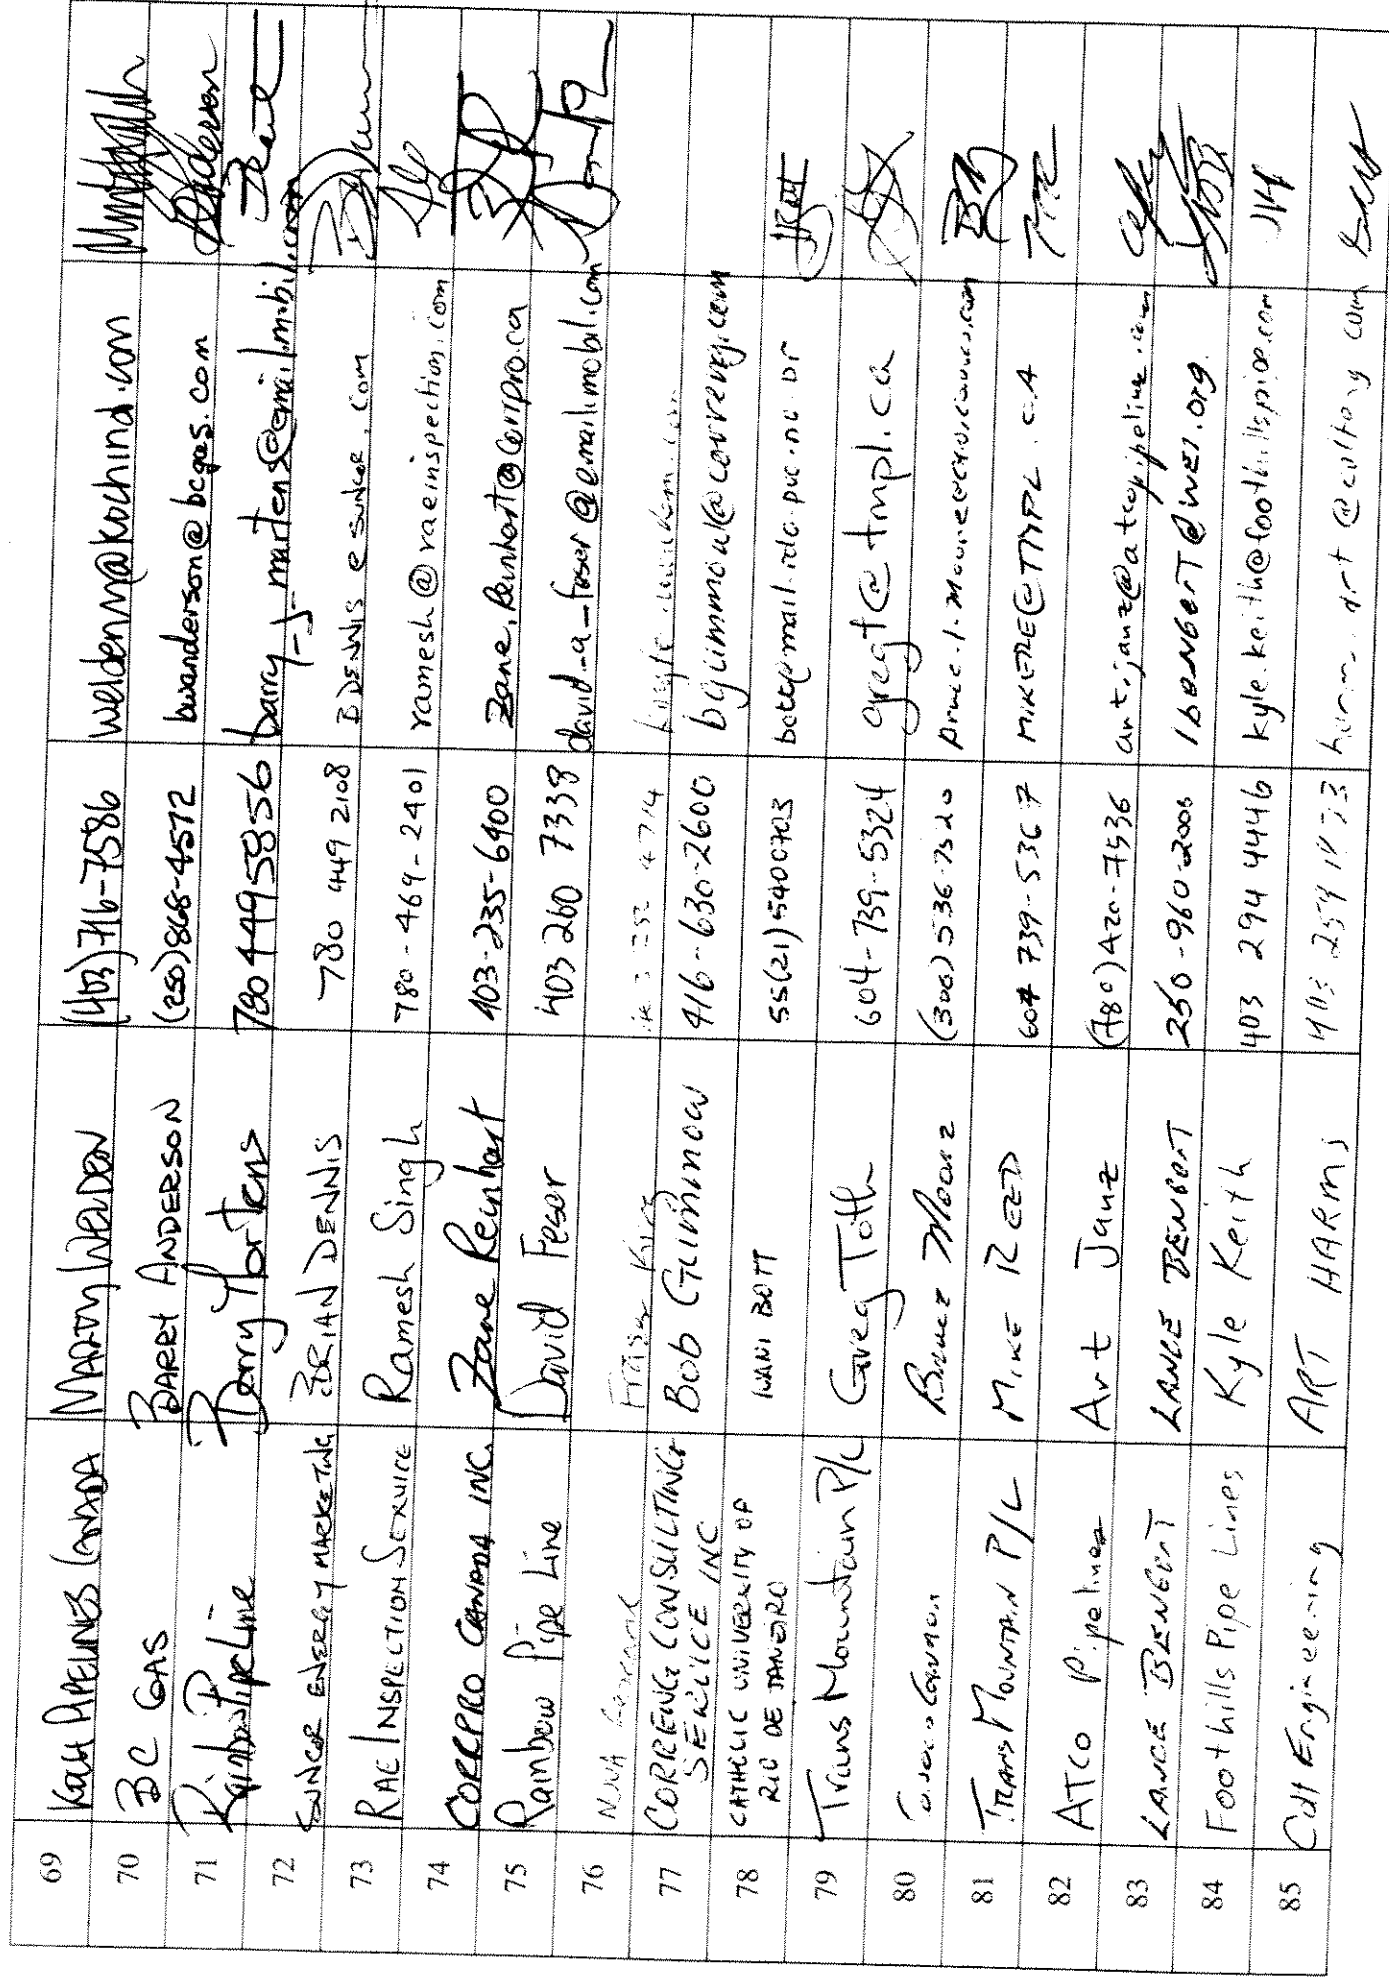 69 Koch PIPELINES CANADA MARTY WELDEN (403)716-7586 weldenm@kochind.com
70 BC GAS BARRY ANDERSON (250)868-4572 bwanderson@bcgas.com
71 Rainbow PipeLine Barry Martens 780 4495856 barry_j_martens@email.mobil.com
72 SUNCOR ENERGY MARKETING BRIAN DENNIS 780 449 2108 BDENNIS @ SUNCOR.COM
73 RAE INSPECTION SERVICE Ramesh Singh 780-469-2401 ramesh@raeinspection.com
74 CORRPRO CANADA INC. Zane Reinhart 403-235-6400 Zane.Reinhart@Corrpro.ca
75 Rainbow Pipe Line David Feser 403 260 7338 david_a_feser@email.mobil.com
76 Fraser King
77 CORRENG CONSULTING Bob GUMMOW 416-630-2600 bgummow@correng.com
SERVICE INC
78 CATHOLIC UNIVERSITY OF IVANI BOTT 55(21)5400703
RIO DE JANEIRO
79 Trans Mountain P/L Greg Toth 604-739-5324 gregt@tmpl.ca
80 Bruce Moore (306)536-7520
81 TRANS MOUNTAIN P/L MIKE REED 604 739-5367 MIKERE@TMPL.CA
82 ATCO Pipelines Art Janz (780)420-7536 art.janz@atcopipelines.com
83 LANCE BENGERT LANCE BENGERT 250-960-2006 lbengert@wei.org
84 Foothills Pipe Lines Kyle Keith 403 294 4446 kyle.keith@foothillspipe.com
85 Engineering ART HARMS 403 259